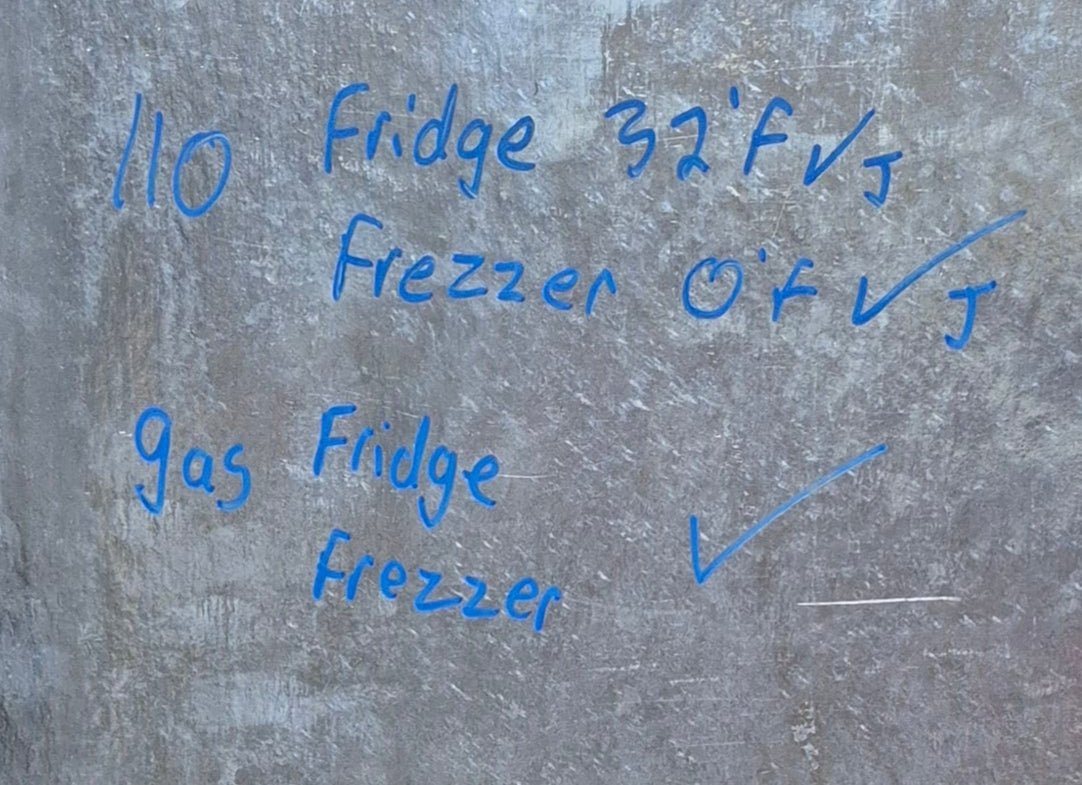 110 Fridge 32°F ✓ J
Frezzer 0°F ✓ J
gas Fridge
Frezzer ✓